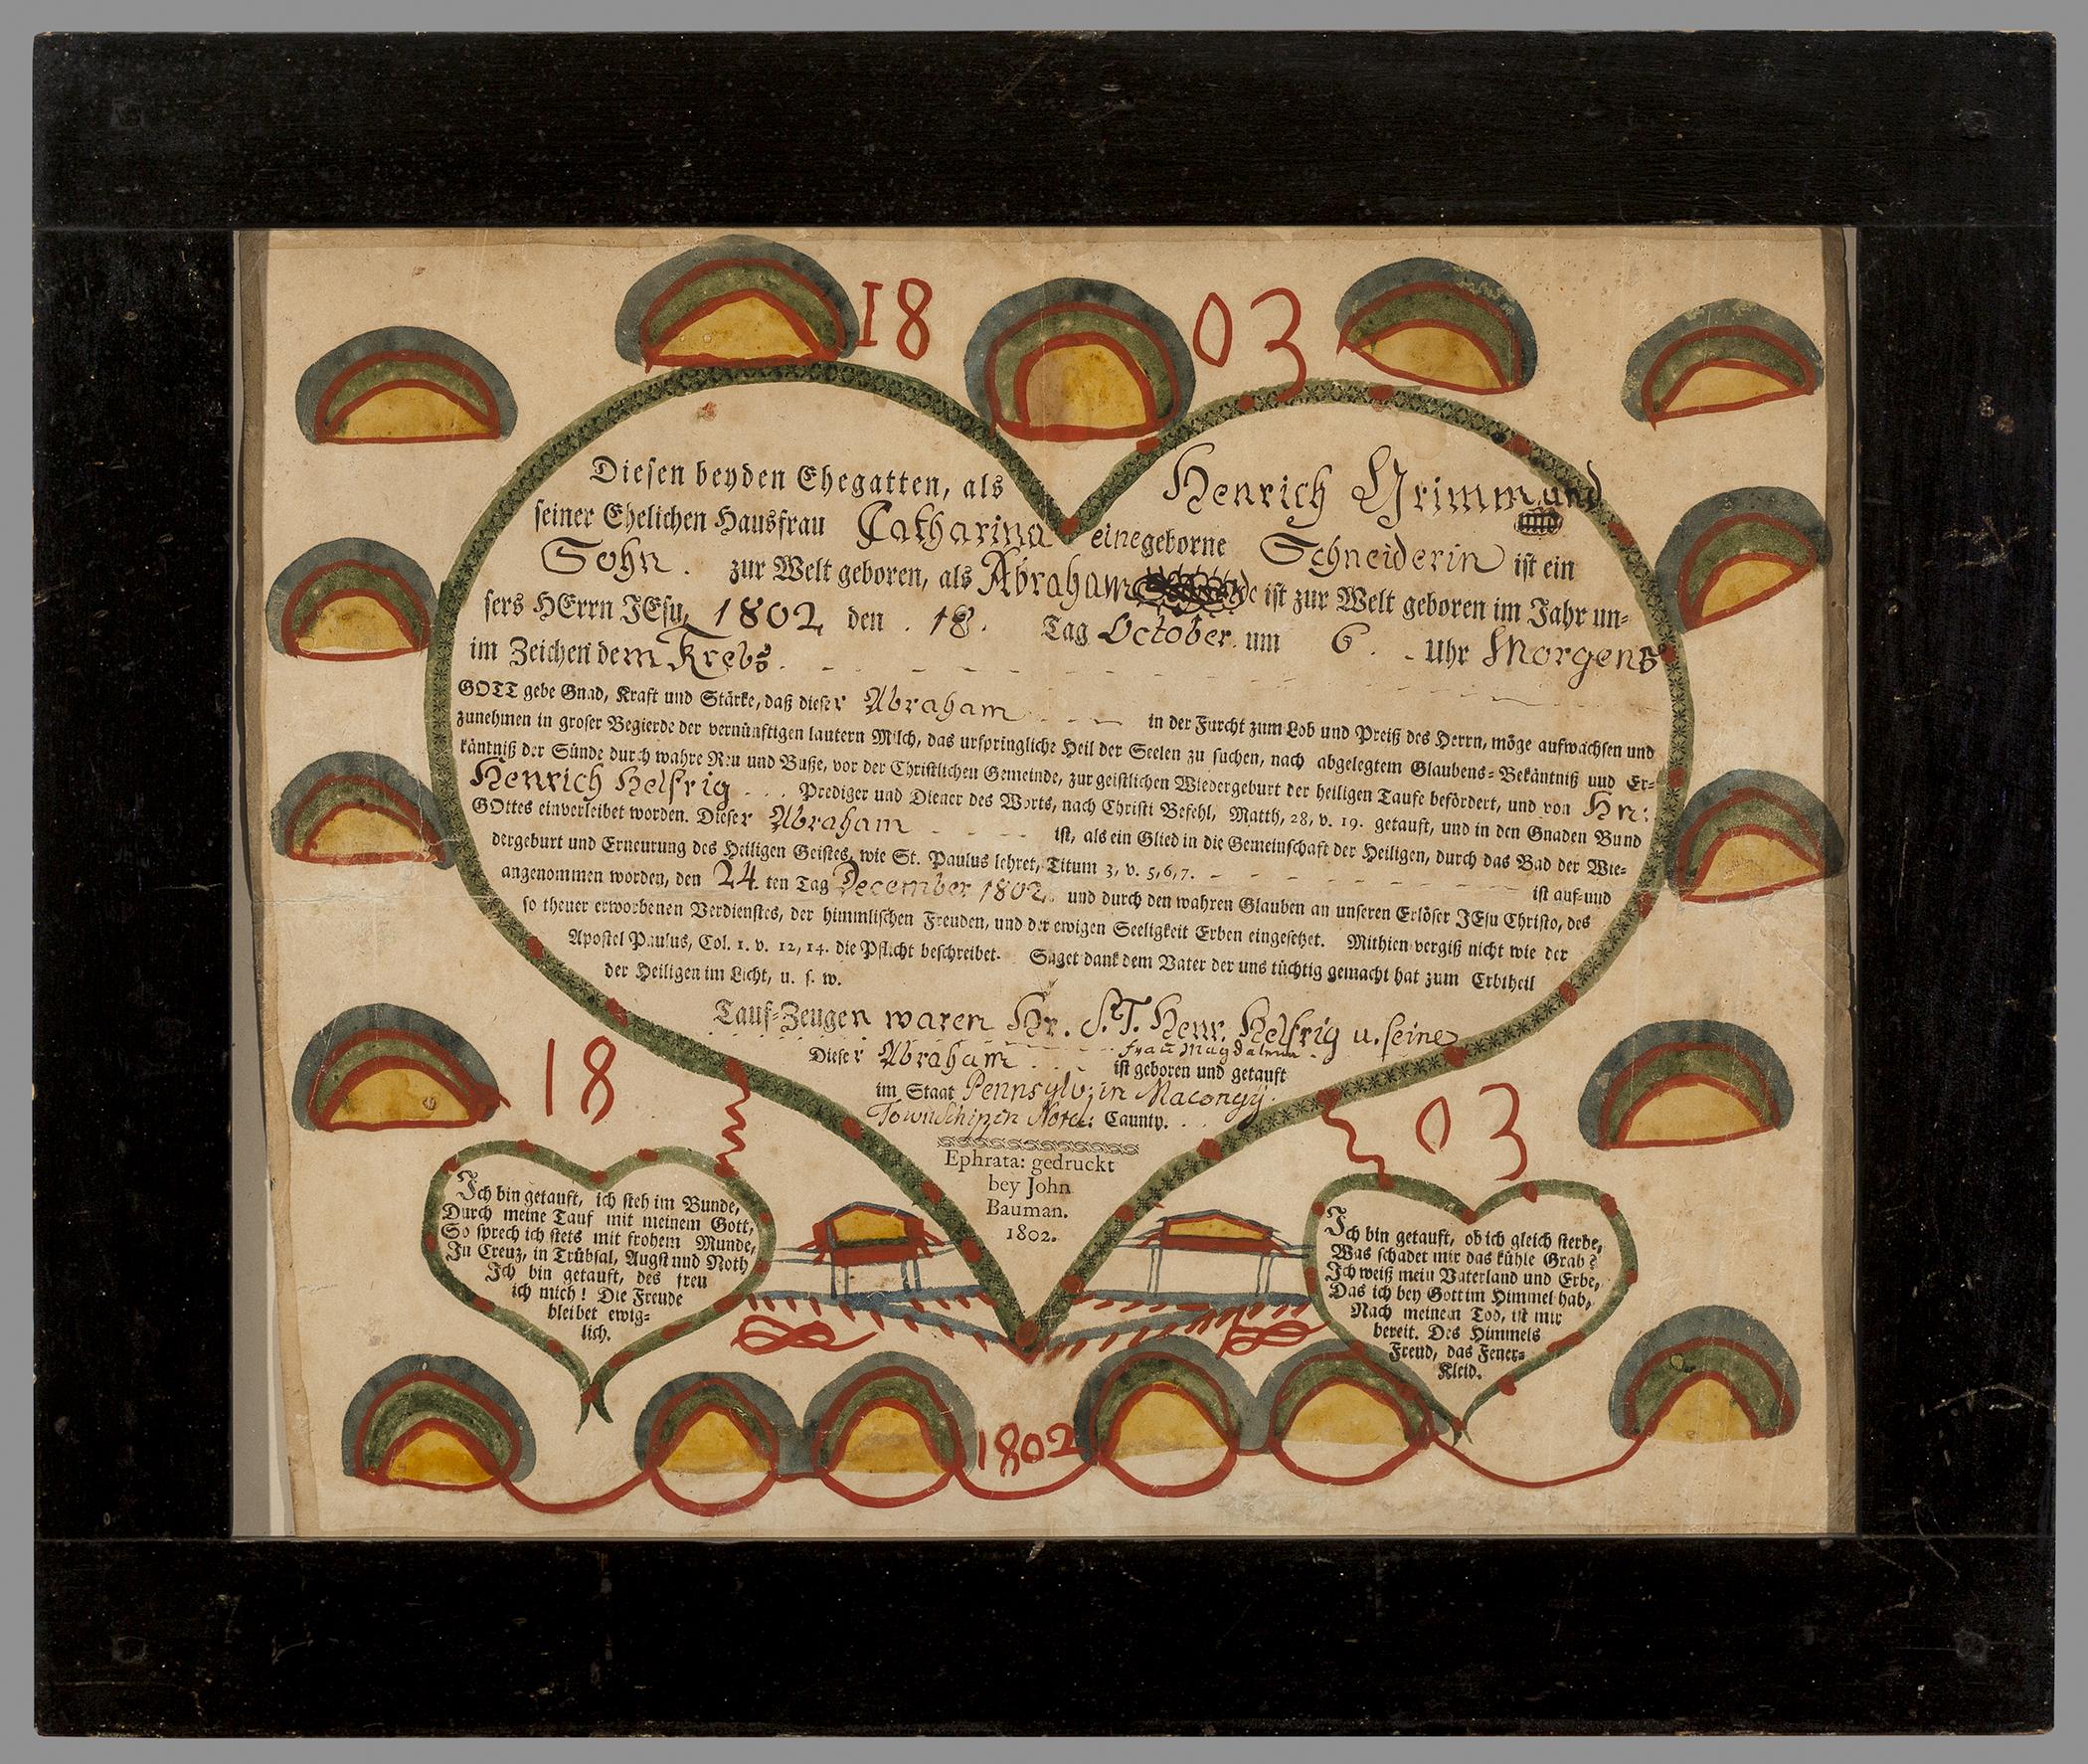 18 03
Diesen beyden Ehegatten, als Henrich Grimm und
seiner Ehelichen Hausfrau Catharina eine geborne Schneiderin ist ein
Sohn. zur Welt geboren, als Abraham ist zur Welt geboren im Jahr un-
sers HErrn JEsu, 1802 den 18. Tag October um 6. Uhr Morgens
im Zeichen dem Krebs.
GOTT gebe Gnad, Kraft und Stärke, daß dieser Abraham in der Furcht zum Lob und Preiß des Herrn, möge aufwachsen und
zunehmen in groser Begierde der vernünftigen lautern Milch, das urspringliche Heil der Seelen zu suchen, nach abgelegtem Glaubens-Bekäntniß und Er-
käntniß der Sünde durch wahre Reu und Buße, vor der Christlichen Gemeinde, zur geistlichen Wiedergeburt der heiligen Taufe befördert, und von Hn:
Henrich Helfrig Prediger und Diener des Worts, nach Christi Befehl, Matth, 28, v. 19. getauft, und in den Gnaden Bund
GOttes einverleibet worden. Dieser Abraham ist, als ein Glied in die Gemeinschaft der Heiligen, durch das Bad der Wie-
dergeburt und Erneurung des Heiligen Geistes, wie St. Paulus lehret, Titum 3, v. 5, 6, 7. ist auf-und
angenommen worden, den 24 ten Tag December 1802. und durch den wahren Glauben an unseren Erlöser JEsu Christo, des
so theuer erworbenen Verdienstes, der himmlischen Freuden, und der ewigen Seeligkeit Erben eingesetzet. Mithien vergiß nicht wie der
Apostel Paulus, Col. 1. v. 12, 14. die Pflicht beschreibet. Saget dank dem Vater der uns tüchtig gemacht hat zum Erbtheil
der Heiligen im Licht, u. s. w.
Tauf-Zeugen waren Hr. S.T. Henr. Helfrig u. seine
frau Magdalena
Dieser Abraham ist geboren und getauft
im Staat Pennsylv: in Macongy
Townschip in County.
Ephrata: gedruckt
bey John
Bauman.
1802.
18 03
Ich bin getauft, ich steh im Bunde,
Durch meine Tauf mit meinem Gott,
So sprech ich stets mit frohem Munde,
In Creuz, in Trübsal, Angst und Noth
Ich bin getauft, des freu
ich mich! Die Freude
bleibet ewig-
lich.
Ich bin getauft, ob ich gleich sterbe,
Was schadet mir das kühle Grab?
Ich weiß mein Vaterland und Erbe,
Das ich bey Gott im Himmel hab,
Nach meinem Tod, ist mir
bereit. Des Himmels
Freud, das Feyer-
Kleid.
1802